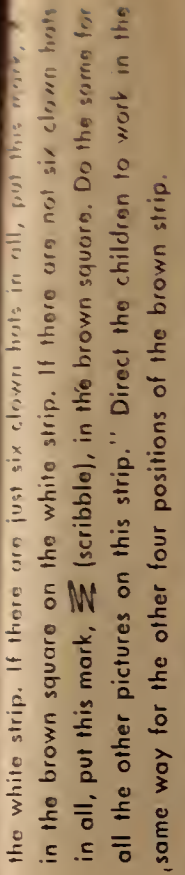 the white strip. If there are just six clown hats in all, put this mark,
in the brown square on the white strip. If there are not six clown hats
in all, put this mark, (scribble), in the brown square. Do the same for
all the other pictures on this strip." Direct the children to work in the
same way for the other four positions of the brown strip.